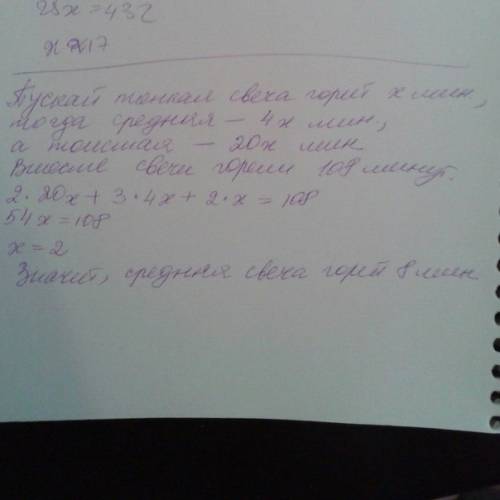 25x = 432
x ≈ 17
Пускай тонкая свеча горит x мин,
тогда средняя – 4x мин,
а толстая – 20x мин
Вместе свечи горели 108 минут.
2·20x + 3·4x + 2·x = 108
54x = 108
x = 2
Значит, средняя свеча горит 8 мин